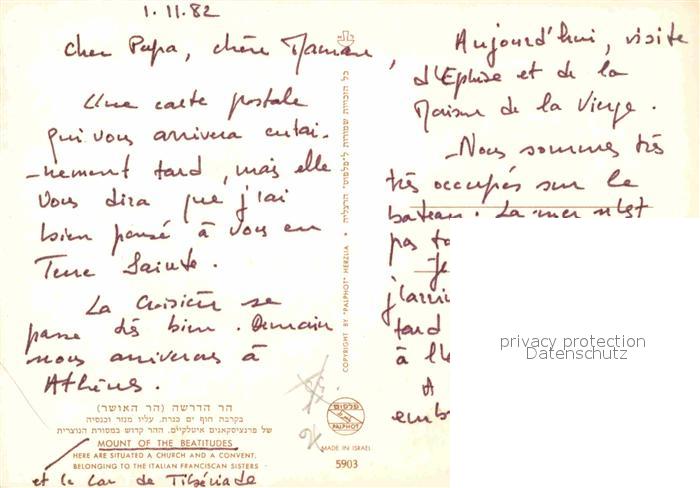 1.11.82
Cher Papa, chère Maman,
Une carte postale
qui vous arrivera certai-
-nement tard, mais elle
vous dira que j'ai
bien pensé à vous en
Terre Sainte.
La croisière se
passe très bien. Demain
nous arriverons à
Athènes.
הר הדרשה (הר האושר)
בקרבת חוף ים כנרת. עליו מנזר וכנסיה
של פרנציסקאנים איטלקיים. ההר קדוש במסורת הנוצרית
MOUNT OF THE BEATITUDES
HERE ARE SITUATED A CHURCH AND A CONVENT,
BELONGING TO THE ITALIAN FRANCISCAN SISTERS
et le Lac de Tibériade
כל הזכויות שמורות ל"פלפוט" הרצליה
COPYRIGHT BY "PALPHOT" HERZLIA
פלפוט
PALPHOT
MADE IN ISRAEL
5903
Aujourd'hui, visite
d'Ephèse et de la
Maison de la Vierge.
-Nous sommes très
très occupés sur le
bateau. La mer n'est
pas
Je
j'arri
tard
à l'
A
emb
privacy protection
Datenschutz